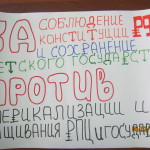 ЗА СОБЛЮДЕНИЕ
КОНСТИТУЦИИ РФ
И СОХРАНЕНИЕ
ЕТСКОГО ГОСУДАРСТ
ПРОТИВ
ЕРИКАЛИЗАЦИИ И
АЩИВАНИЯ РПЦ И ГОСУДАР